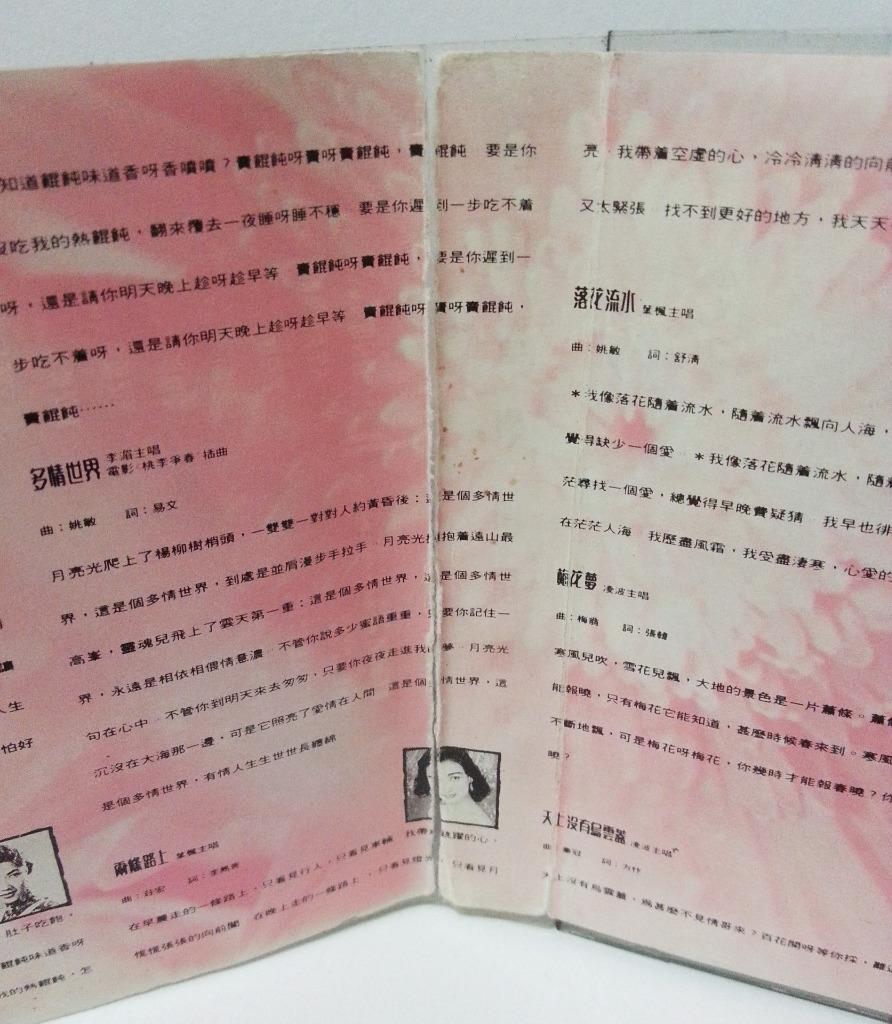 知道餛飩味道香呀香噴噴？賣餛飩呀賣呀賣餛飩，賣餛飩 要是你
吃我的熱餛飩，翻來覆去一夜睡呀睡不穩 要是你遲到一步吃不着
呀，還是請你明天晚上趁呀趁早等 賣餛飩呀賣餛飩，要是你遲到一
步吃不着呀，還是請你明天晚上趁呀趁早等 賣餛飩呀賣呀賣餛飩，
賣餛飩……
多情世界 李湄主唱
電影 桃李爭春 插曲
曲：姚敏 詞：易文
月亮光爬上了楊柳樹梢頭，一雙雙一對對人約黃昏後：這是個多情世
界，這是個多情世界，到處是並肩漫步手拉手 月亮光擁抱着遠山最
高峯，靈魂兒飛上了雲天第一重：這是個多情世界，這是個多情世
界，永遠是相依相偎情意濃 不管你說多少蜜語重重，只要你記住一
句在心中 不管你到明天來去匆匆，只要你夜夜走進我的夢 月亮光
沉沒在大海那一邊，可是它照亮了愛情在人間 這是個多情世界，這
是個多情世界，有情人生生世世長纏綿
兩條路上 葉楓主唱
曲：莊宏 詞：李雋青
我帶着跳躍的心，
在早晨走的一條路上，只看見行人，只看見車輛
慌慌張張的向前闖 在晚上走的一條路上，只看見燈光，只看見月
人生
怕好
肚子吃飽，
餛飩味道香呀
我的熱餛飩，怎
亮 我帶着空虛的心，冷冷清清的向前
又太緊張 找不到更好的地方，我天天
落花流水 葉楓主唱
曲：姚敏 詞：舒淸
＊我像落花隨着流水，隨着流水飄向人海，
覺得缺少一個愛 ＊我像落花隨着流水，隨着
茫尋找一個愛，總覺得早晚費疑猜 我早也徘
在茫茫人海 我歷盡風霜，我受盡淒寒，心愛的
梅花夢 凌波主唱
曲：梅翁 詞：張韓
寒風兒吹，雪花兒飄，大地的景色是一片蕭條。蕭條
能報曉，只有梅花它能知道，甚麼時候春來到。寒風
不斷地飄，可是梅花呀梅花，你幾時才能報春曉？你
曉？
天上沒有烏雲蓋 凌波主唱
曲：華冠 詞：方忭
天上沒有烏雲蓋，爲甚麼不見情哥來？百花開呀等你採，離